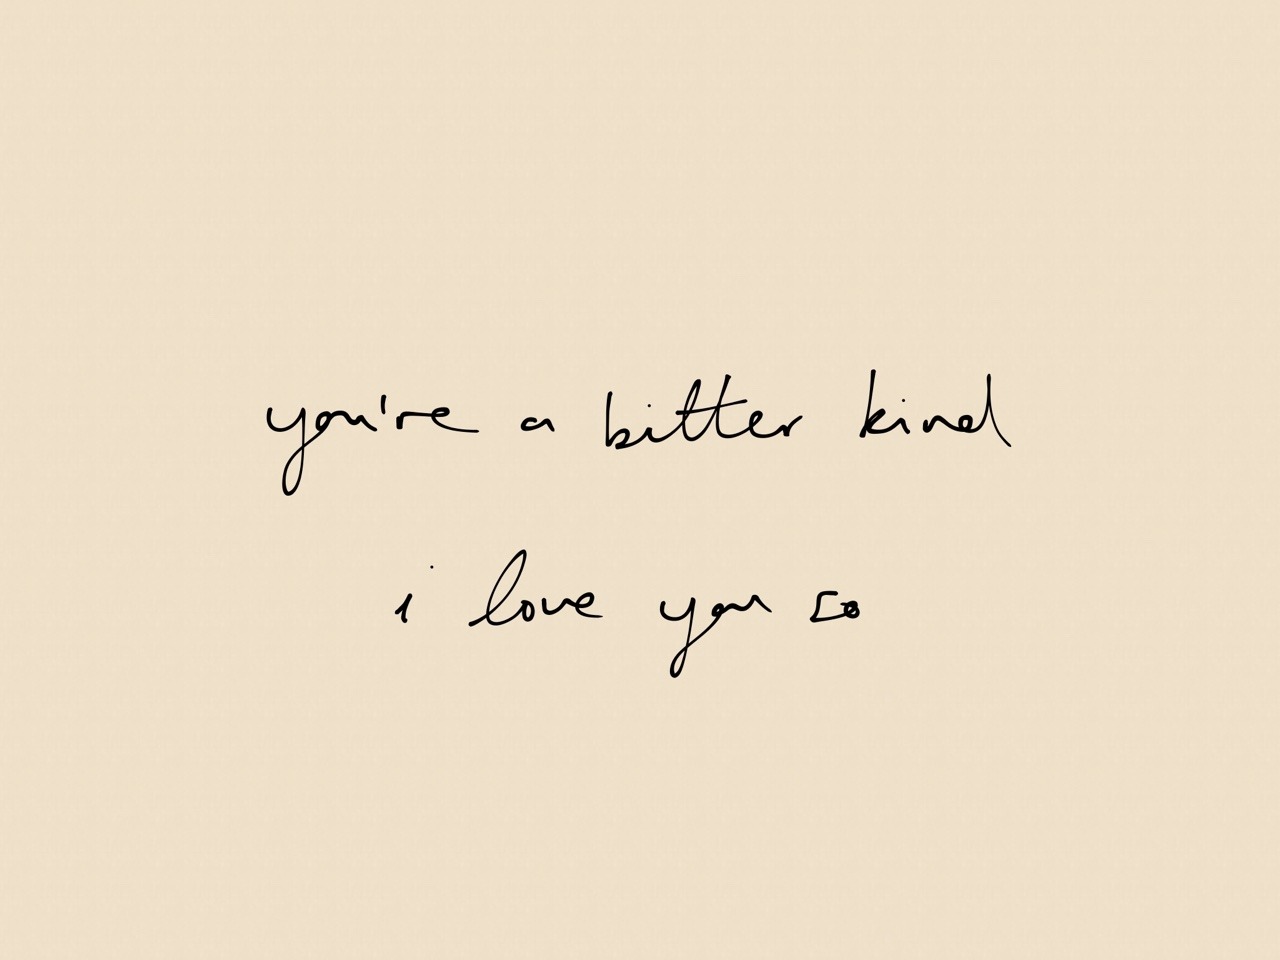 you're a bitter kind
i love you so